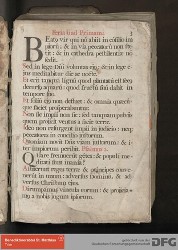 Feria sexta Primam:
Eatus vir qui nō abiit in cōsilio im
piorū: & in via peccatorū non ste
tit: & in cathedra pestilentiæ nō
sedit.
Sed in lege Dñi voluntas eius: & in lege e
ius meditabitur die ac nocte.
Et erit tanquā lignū quod plantatū est secus
decursus aquarū: quod fructū suū dabit in
tempore
Et folium eius non defluet: & omnia quæcū
que faciet prosperabuntur.
Non sic impii non sic: sed tanquam pulvis
quem projicit ventus a facie terræ.
Ideo non resurgent impii in judicio: neq;
peccatores in concilio justorum.
Quoniam novit Dñs viam justorum: & i
ter impiorum peribit. Psalmus 2.
Quare fremuerunt gētes: & populi me
ditati sunt inania?
Astiterunt reges terræ: & principes conve
nerunt in unum: adversus Dominum, & ad
versus Christum eius.
Dirumpamus vincula eorum: & projicia
mus a nobis jugum ipsorum.